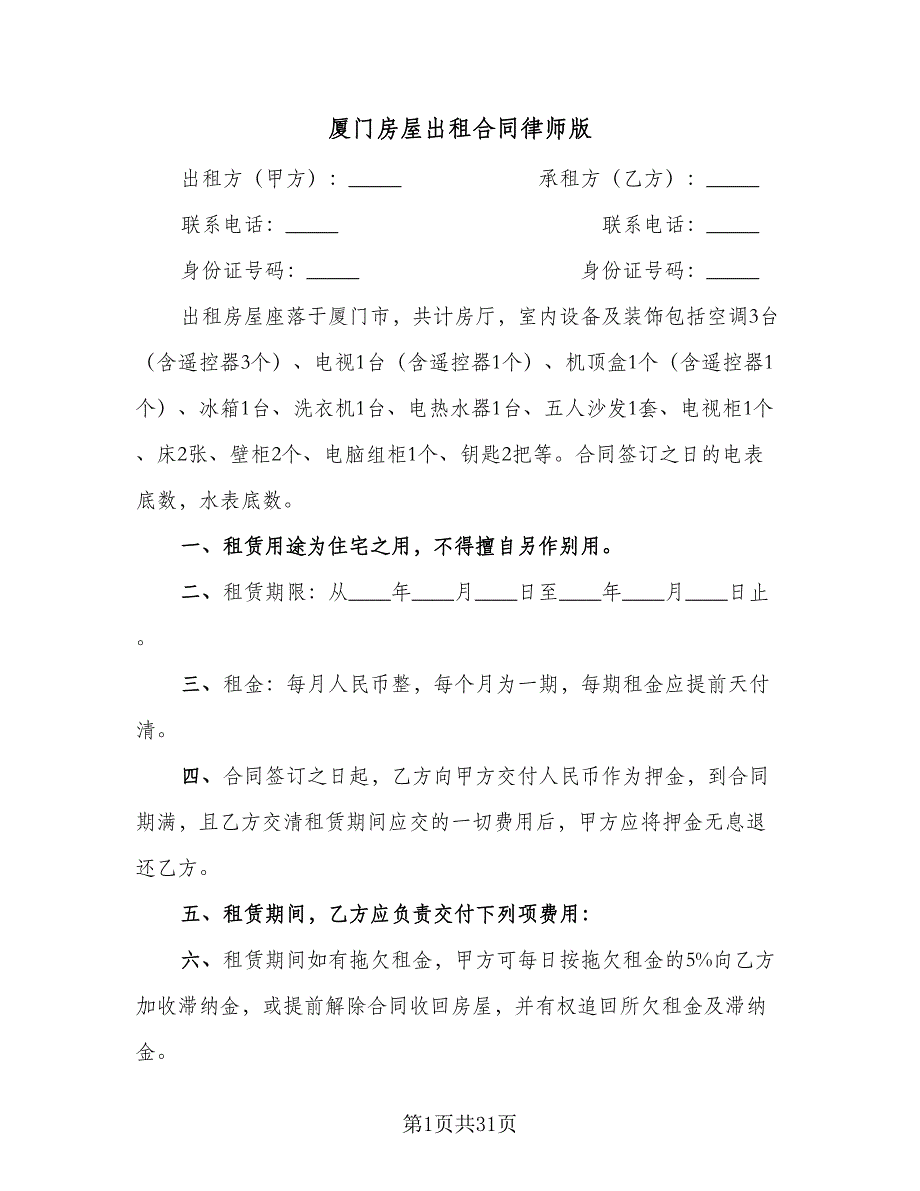 厦门房屋出租合同律师版
出租方（甲方）：_____ 承租方（乙方）：_____
联系电话：_____ 联系电话：_____
身份证号码：_____ 身份证号码：_____
出租房屋座落于厦门市，共计房厅，室内设备及装饰包括空调3台
（含遥控器3个）、电视1台（含遥控器1个）、机顶盒1个（含遥控器1
个）、冰箱1台、洗衣机1台、电热水器1台、五人沙发1套、电视柜1个
、床2张、壁柜2个、电脑组柜1个、钥匙2把等。合同签订之日的电表
底数，水表底数。
一、租赁用途为住宅之用，不得擅自另作别用。
二、租赁期限：从____年____月____日至____年____月____日止
。
三、租金：每月人民币整，每个月为一期，每期租金应提前天付
清。
四、合同签订之日起，乙方向甲方交付人民币作为押金，到合同
期满，且乙方交清租赁期间应交的一切费用后，甲方应将押金无息退
还乙方。
五、租赁期间，乙方应负责交付下列项费用：
六、租赁期间如有拖欠租金，甲方可每日按拖欠租金的5%向乙方
加收滞纳金，或提前解除合同收回房屋，并有权追回所欠租金及滞纳
金。
第1页共31页